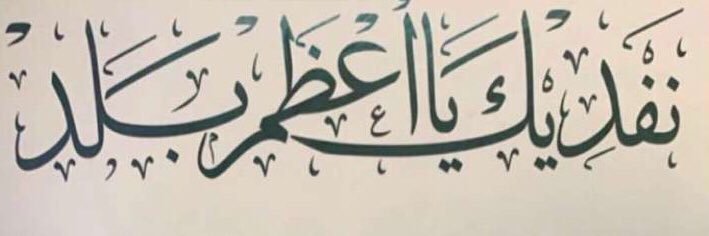 نَفْدِيكَ يَا أَعْظَمَ بَلَد